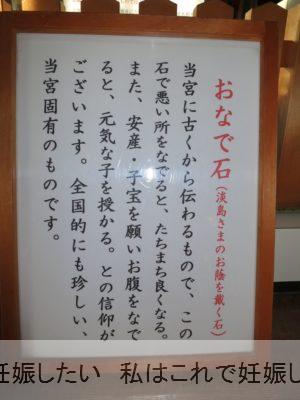 おなで石(淡島さまのお蔭を戴く石)
当宮に古くから伝わるもので、この
石で悪い所をなでると、たちまち良くなる。
また、安産・子宝を願いお腹をなで
ると、元気な子を授かる。との信仰が
ございます。全国的にも珍しい、
当宮固有のものです。
妊娠したい 私はこれで妊娠し